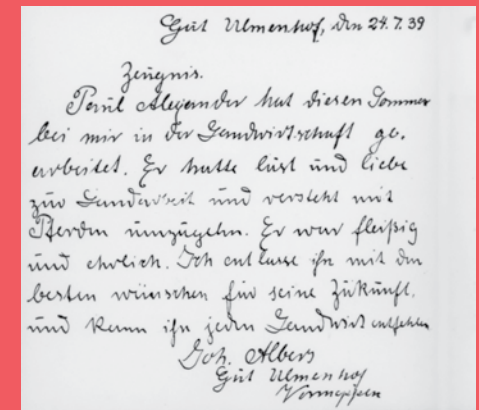 Gut Ulmenhof, den 24.7.39
Zeugnis.
Paul Alexander hat diesen Sommer
bei mir in der Landwirtschaft ge-
arbeitet. Er hatte lust und liebe
zur Landarbeit und versteht mit
Pferden umzugehn. Er war fleißig
und ehrlich. Ich entlasse ihn mit den
besten wünschen für seine Zukunft.
und kann ihn jeden Landwirt entfehlen
Joh. Albers
Gut Ulmenhof